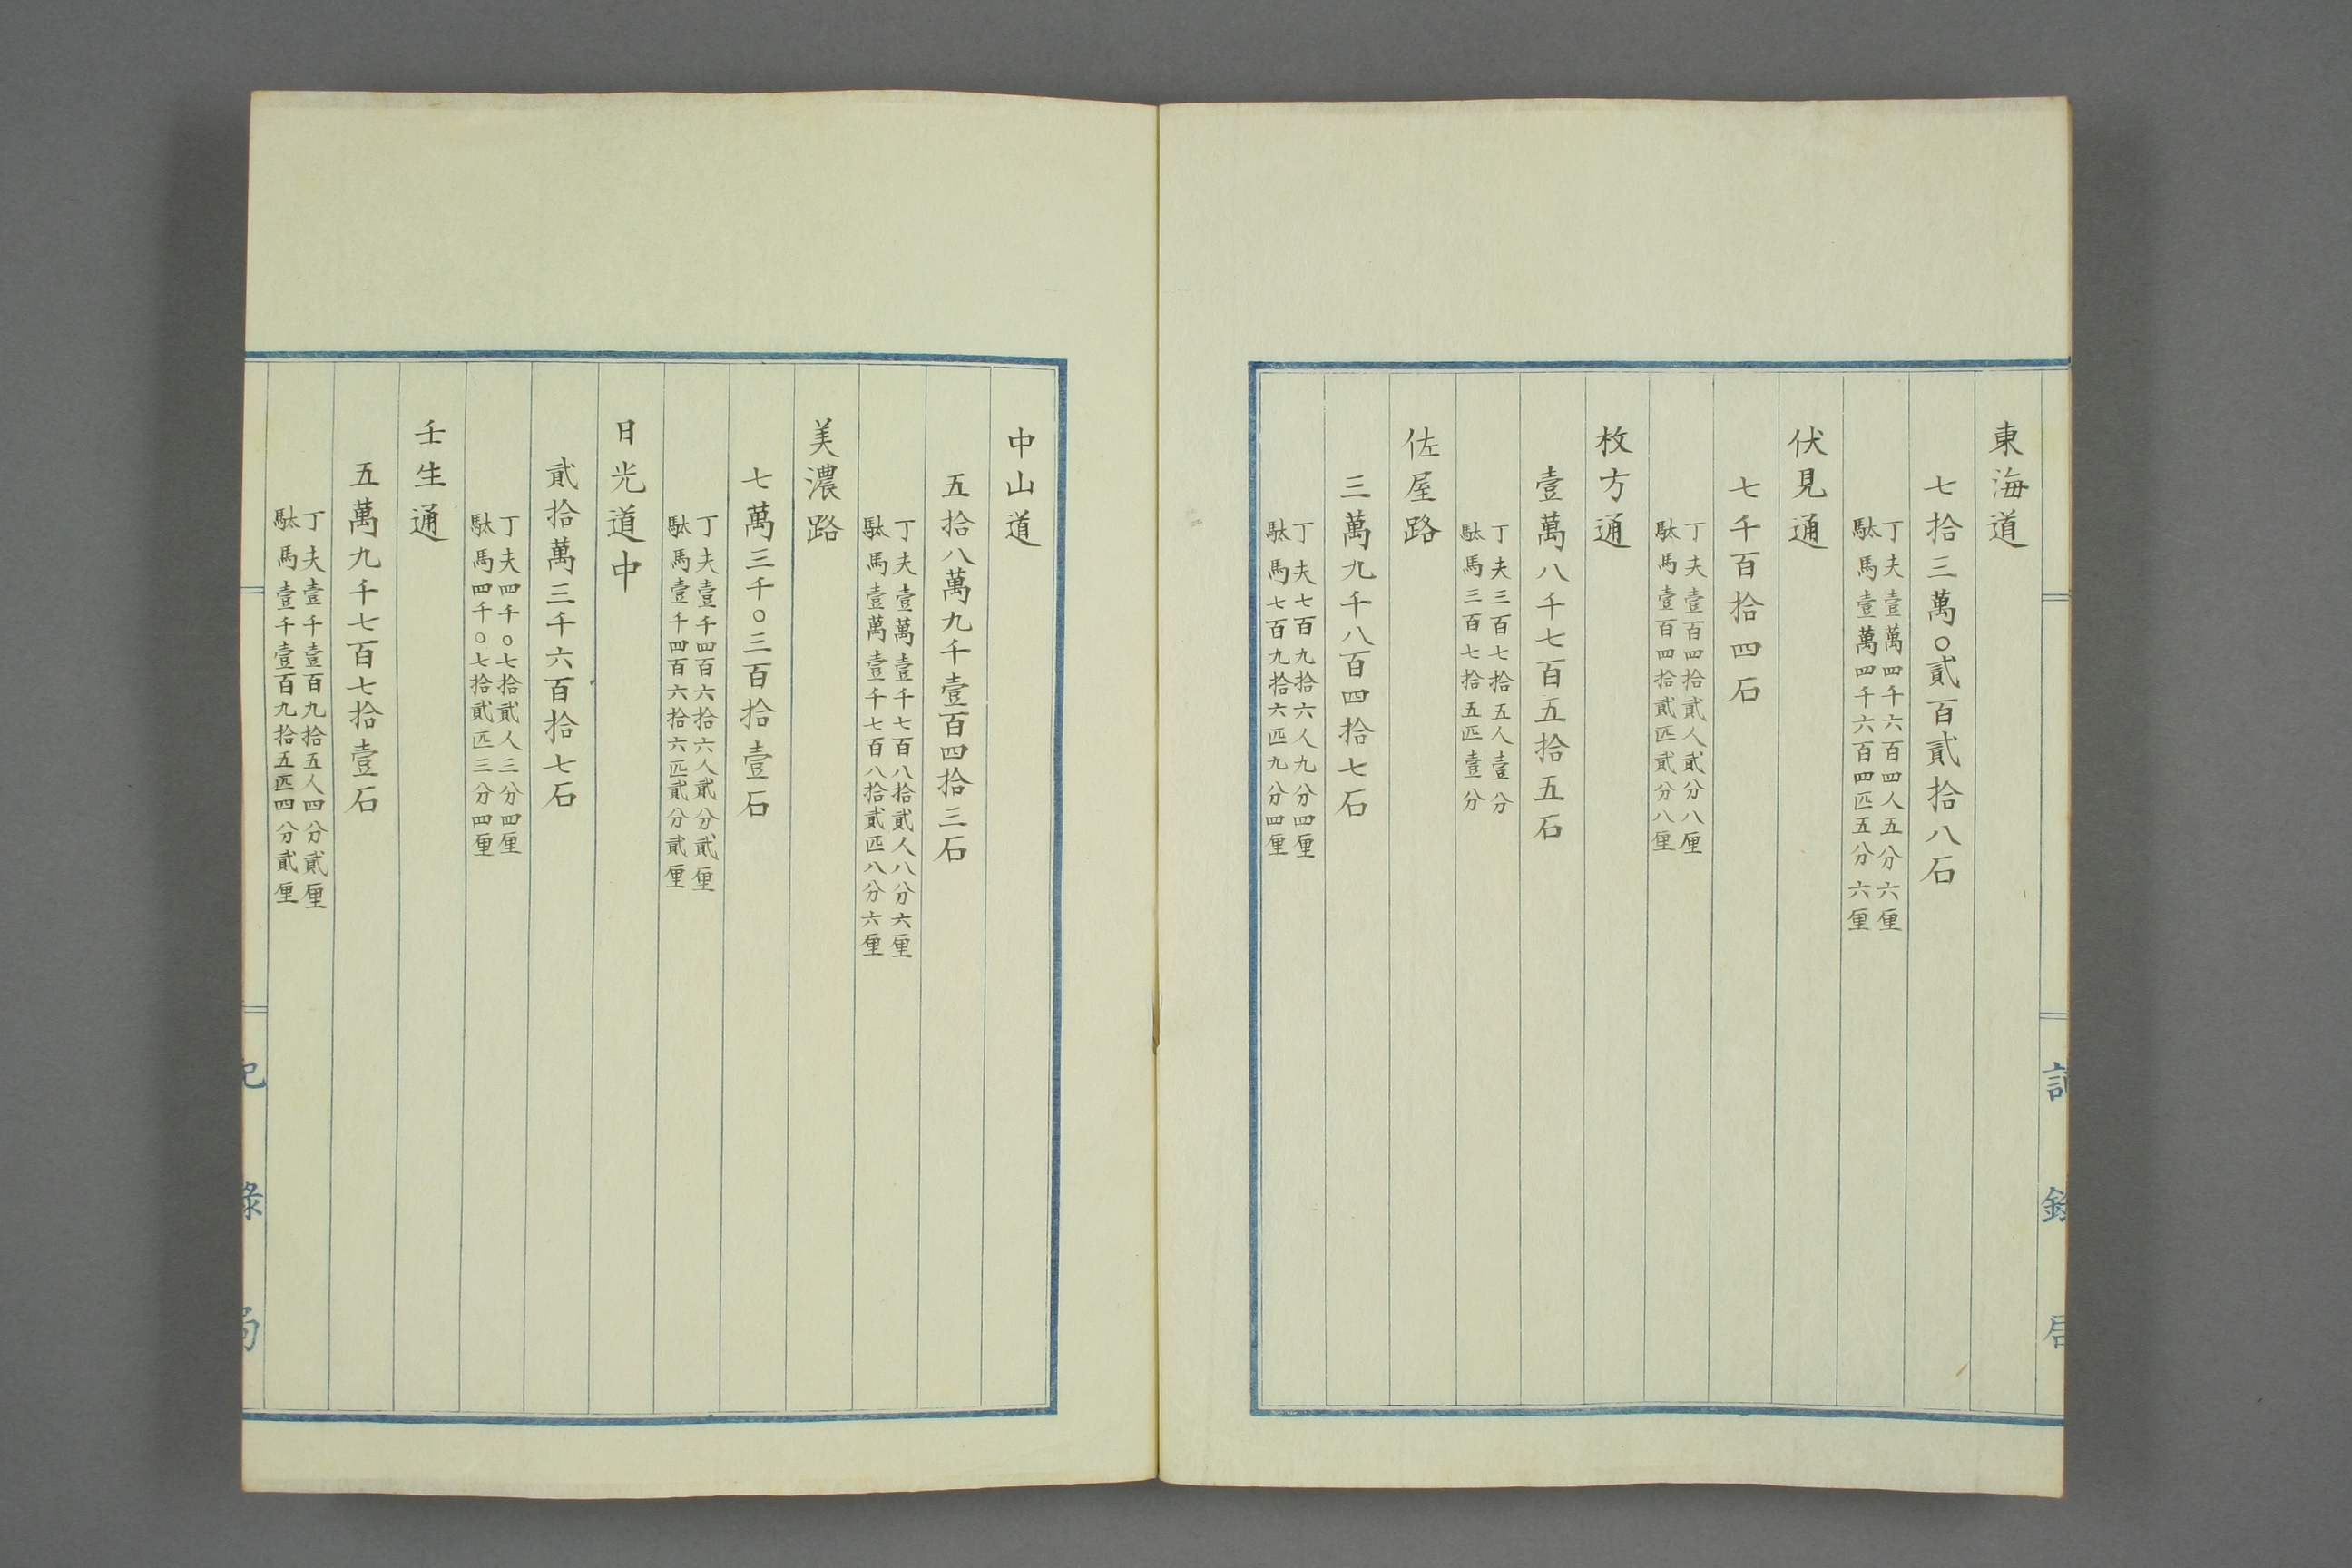 東海道
七拾三萬〇貳百貳拾八石
丁夫壹萬四千六百四人五分六厘
駄馬壹萬四千六百四匹五分六厘
伏見通
七千百拾四石
丁夫壹百四拾貳人貳分八厘
駄馬壹百四拾貳匹貳分八厘
枚方通
壹萬八千七百五拾五石
丁夫三百七拾五人壹分
駄馬三百七拾五匹壹分
佐屋路
三萬九千八百四拾七石
丁夫七百九拾六人九分四厘
駄馬七百九拾六匹九分四厘
中山道
五拾八萬九千壹百四拾三石
丁夫壹萬壹千七百八拾貳人八分六厘
駄馬壹萬壹千七百八拾貳匹八分六厘
美濃路
七萬三千〇三百拾壹石
丁夫壹千四百六拾六人貳分貳厘
駄馬壹千四百六拾六匹貳分貳厘
日光道中
貳拾萬三千六百拾七石
丁夫四千〇七拾貳人三分四厘
駄馬四千〇七拾貳匹三分四厘
壬生通
五萬九千七百七拾壹石
丁夫壹千壹百九拾五人四分貳厘
駄馬壹千壹百九拾五匹四分貳厘